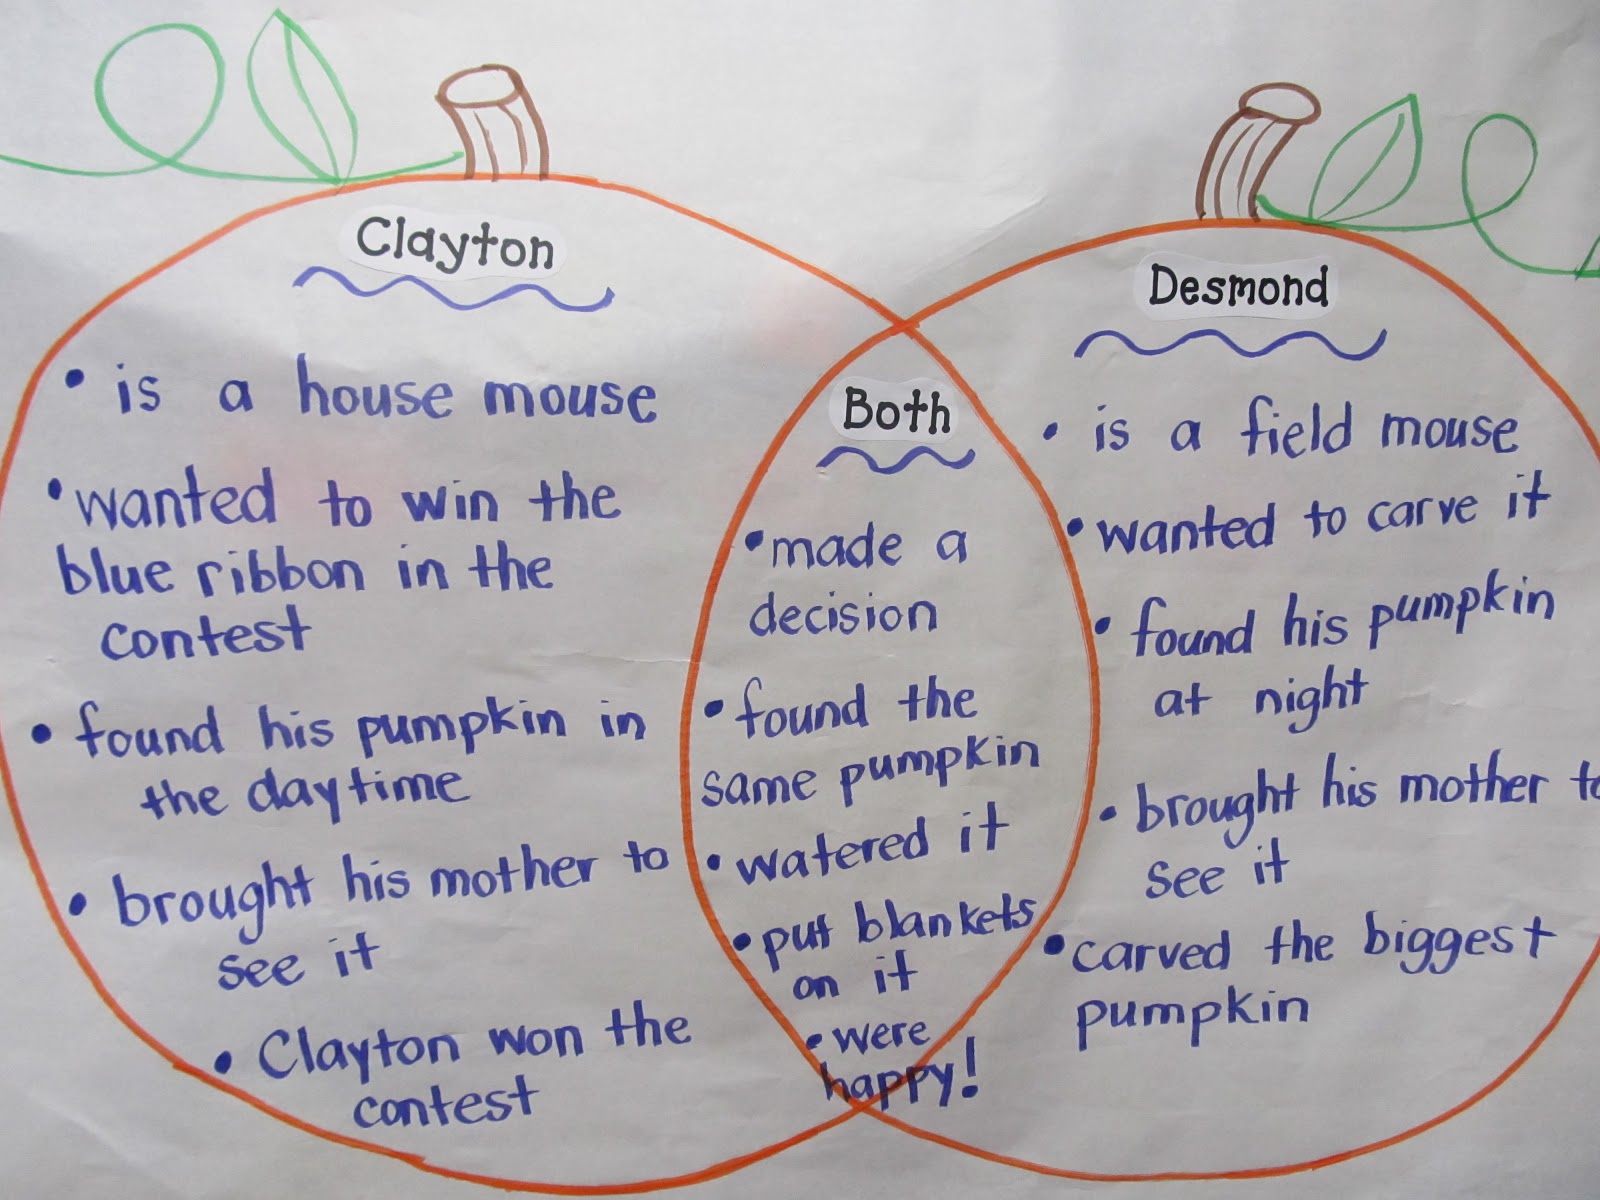 Clayton
• is a house mouse
• wanted to win the
blue ribbon in the
contest
• found his pumpkin in
the daytime
• brought his mother to
see it
• Clayton won the
contest
Both
• made a
decision
• found the
same pumpkin
• watered it
• put blankets
on it
• were
happy!
Desmond
• is a field mouse
• wanted to carve it
• found his pumpkin
at night
• brought his mother to
see it
• carved the biggest
pumpkin